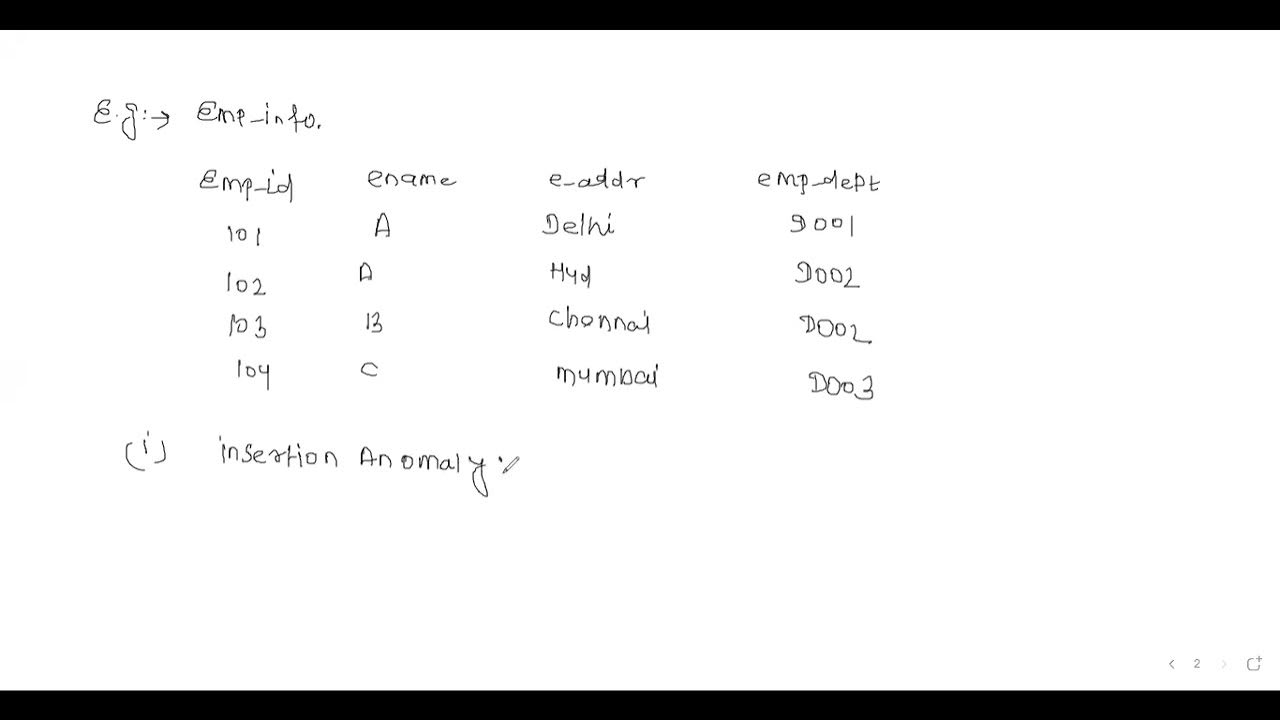 E.g:→ Emp_info.
Emp_id ename e_addr emp_dept
101 A Delhi D001
102 A Hyd D002
103 B Chennai D002
104 C mumbai D003
(i) insertion Anomaly:
< 2 >